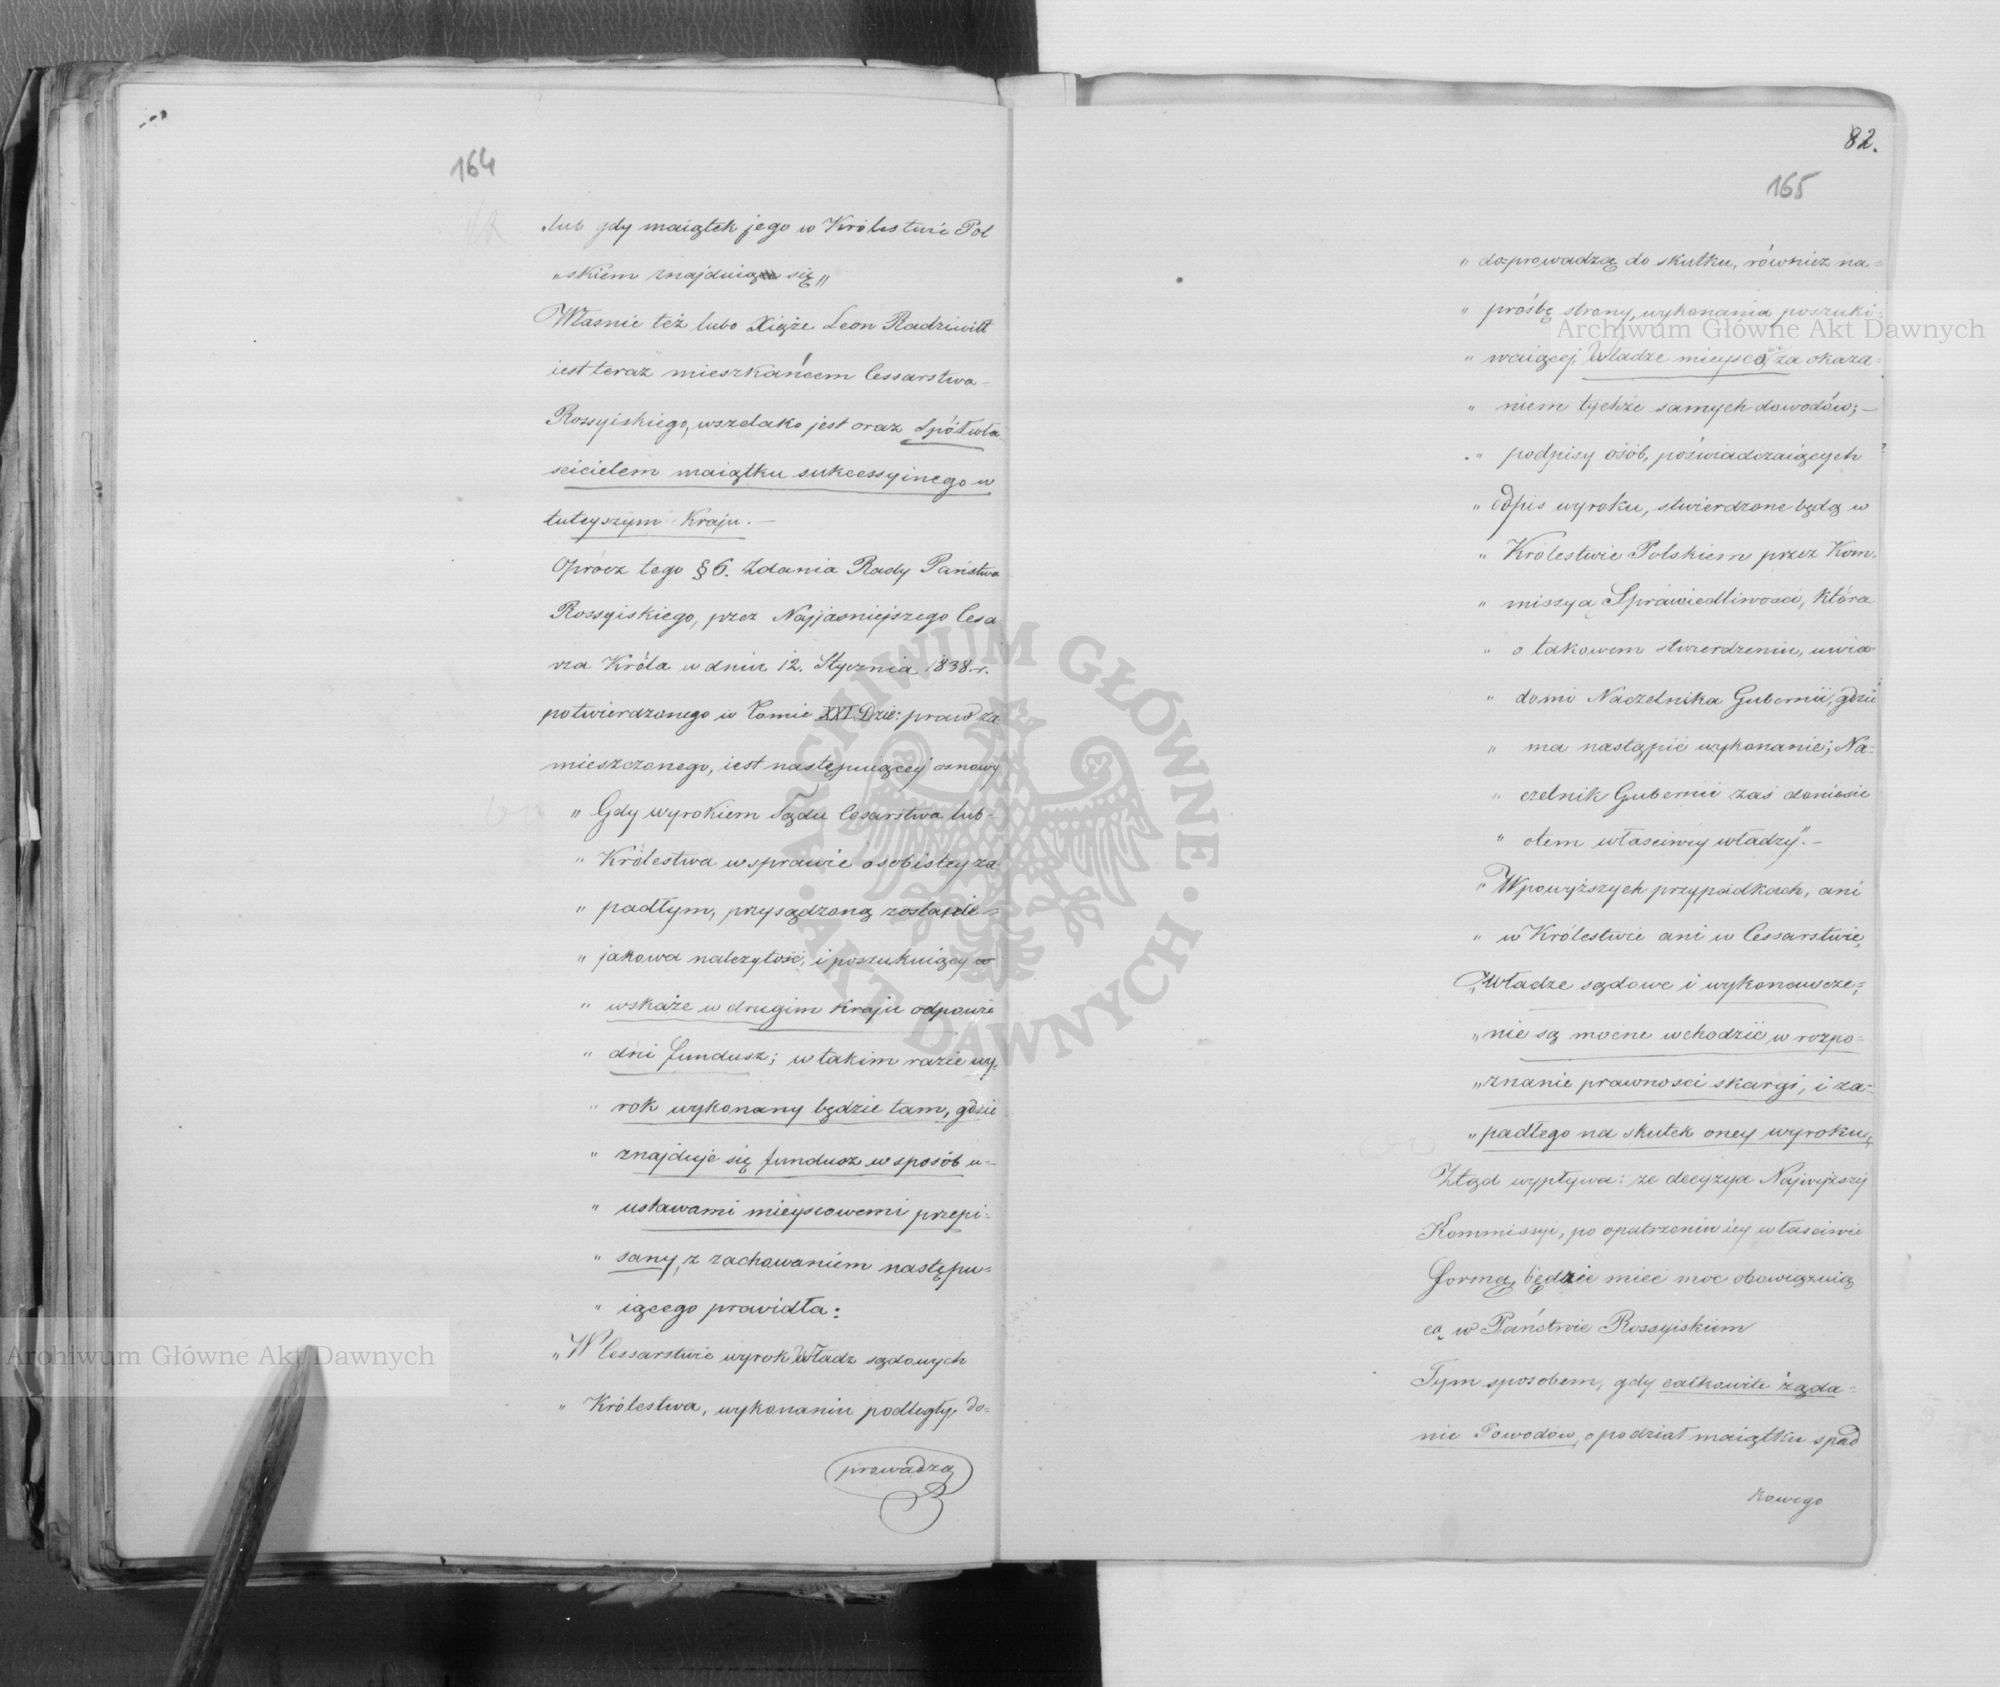 164
„lub gdy maiątek jego w Królestwie Pol
„skiem znajduiące się„
Własnie też lubo Xiąże Leon Radziwiłł
iest teraz mieszkańcem Cessarstwa
Rossyiskiego, wszelako jest oraz Spółwła
scicielem maiątku sukcessyinego w
tuteyszym Kraju. —
Oprócz tego § 6. Zdania Rady Państwa
Rossyiskiego, przez Najjasniejszego Cesa
rza Króla w dniu 12. Stycznia 1838. r.
potwierdzonego w Tomie XXI. Dzie: praw za
mieszczonego, iest następuiącey osnowy
„ Gdy wyrokiem Sądu Cesarstwa lub
„ Królestwa w sprawie osobistey za
„ padłym, przysądzoną zostanie
„ jakowa należytość, i poszukuiący
„ wskaże w drugim Kraju odpowie
„ dni fundusz; w takim razie wy=
„ rok wykonany będzie tam, gdzie
„ znajduje się fundusz w sposób u=
„ ustawami mieyscowemi przepi=
„ sany, z zachowaniem następu=
„ iącego prawidła:
„ W Cessarstwie wyrok Władz sądowych
„ Królestwa, wykonaniu podległy, do=
prowadzą
82.
165
„ doprowadzą do skutku, również na=
„ prośbę strony, wykonania poszuki=
„ waiącej Władze mieysco, za okaza=
„ niem tychże samych dowodów; —
„ podpisy osób, poświadczaiących
„ odpis wyroku, stwierdzone będą w
„ Królestwie Polskiem przez Kom=
„ missya Sprawiedliwosci, która
„ o takowem stwierdzeniu, uwia=
„ domi Naczelnika Gubernii, gdzie
„ ma nastąpić wykonanie; Na=
„ czelnik Gubernii zaś doniesie
„ otem właściwey władzy". —
„ W powyższych przypadkach, ani
„ w Królestwie ani w Cessarstwie,
„ Władze sądowe i wykonawcze,
„ nie są mocne wchodzić w rozpo=
„ znanie prawnosci skargi, i za=
„ padłego na skutek oney wyroku„
Ztąd wypływa: że decyzya Najwyższej
Kommissyi, po opatrzeniu iey właściwie
formą, będzie mieć moc obowiązuią
cą w Państwie Rossyiskiem
Tym sposobem, gdy całkowite żąda=
nie Powodów, o podział maiątku spad
kowego
Archiwum Główne Akt Dawnych
Archiwum Główne Akt Dawnych
ARCHIWUM GŁÓWNE · AKT DAWNYCH ·